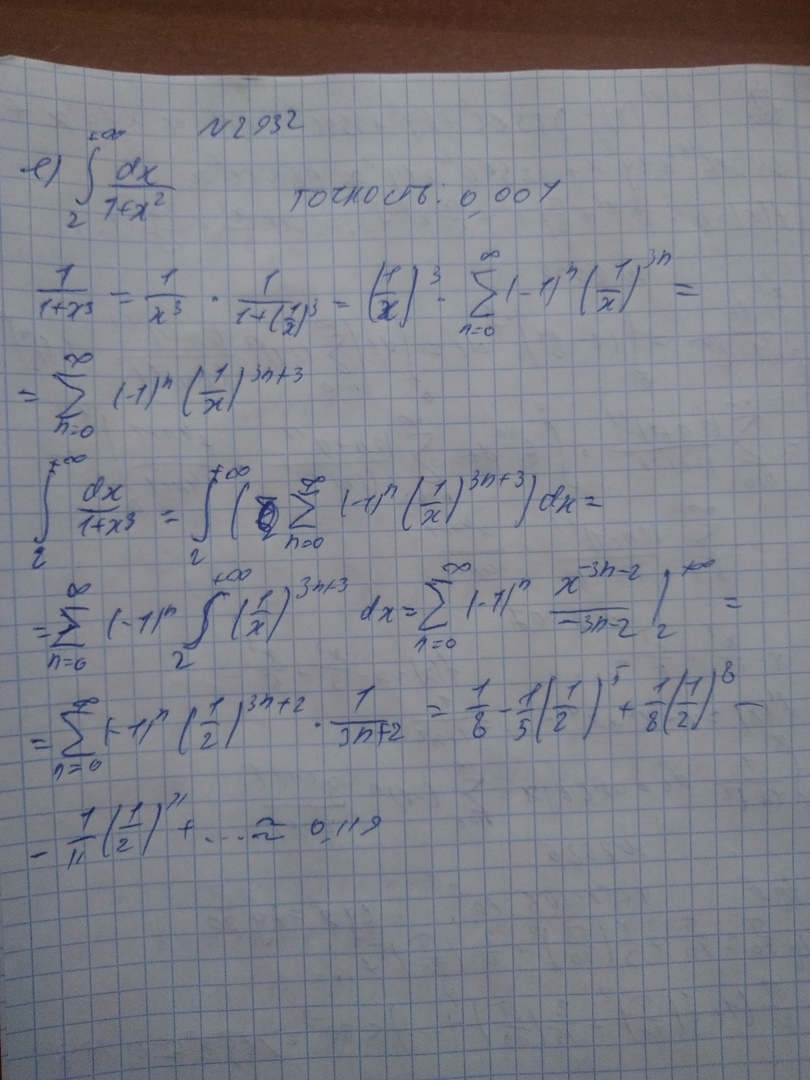 №2932
е) ∫_2^{+∞} dx/(1+x²) точность: 0,001
1/(1+x³) = 1/x³ · 1/(1+(1/x)³) = (1/x)³ · ∑_{n=0}^{∞} (-1)ⁿ (1/x)^{3n} =
= ∑_{n=0}^{∞} (-1)ⁿ (1/x)^{3n+3}
∫_2^{+∞} dx/(1+x³) = ∫_2^{+∞} (∑_{n=0}^{∞} (-1)ⁿ (1/x)^{3n+3}) dx =
= ∑_{n=0}^{∞} (-1)ⁿ ∫_2^{+∞} (1/x)^{3n+3} dx = ∑_{n=0}^{∞} (-1)ⁿ x^{-3n-2}/(-3n-2) |_2^{+∞} =
= ∑_{n=0}^{∞} (-1)ⁿ (1/2)^{3n+2} · 1/(3n+2) = 1/8 - 1/5 (1/2)^5 + 1/8 (1/2)^8 -
- 1/11 (1/2)^11 + ... ≈ 0,119